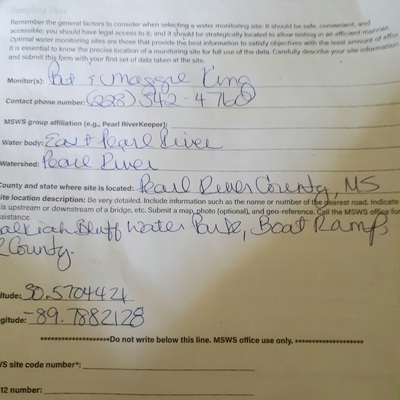 Sampling Sites
Remember the general factors to consider when selecting a water monitoring site: It should be safe, convenient, and
accessible; you should have legal access to it; and it should be strategically located to allow testing in an efficient manner.
Optimal water monitoring sites are those that provide the best information to satisfy objectives with the least amount of effort
It is essential to know the precise location of a monitoring site for full use of the data. Carefully describe your site information
and submit this form with your first set of data taken at the site.
Monitor(s): Pat & Maggie King
Contact phone number: (228) 342-4760
MSWS group affiliation (e.g., Pearl RiverKeeper):
Water body: East Pearl River
Watershed: Pearl River
County and state where site is located: Pearl River County, MS
ite location description: Be very detailed. Include information such as the name or number of the nearest road. Indicate
is upstream or downstream of a bridge, etc. Submit a map, photo (optional), and geo-reference. Call the MSWS office for
sistance.
alkiah Bluff Water Park, Boat Ramp
County.
itude: 30.5704424
gitude: -89.7882128
********************Do not write below this line. MSWS office use only. ********************
VS site code number*:
12 number: